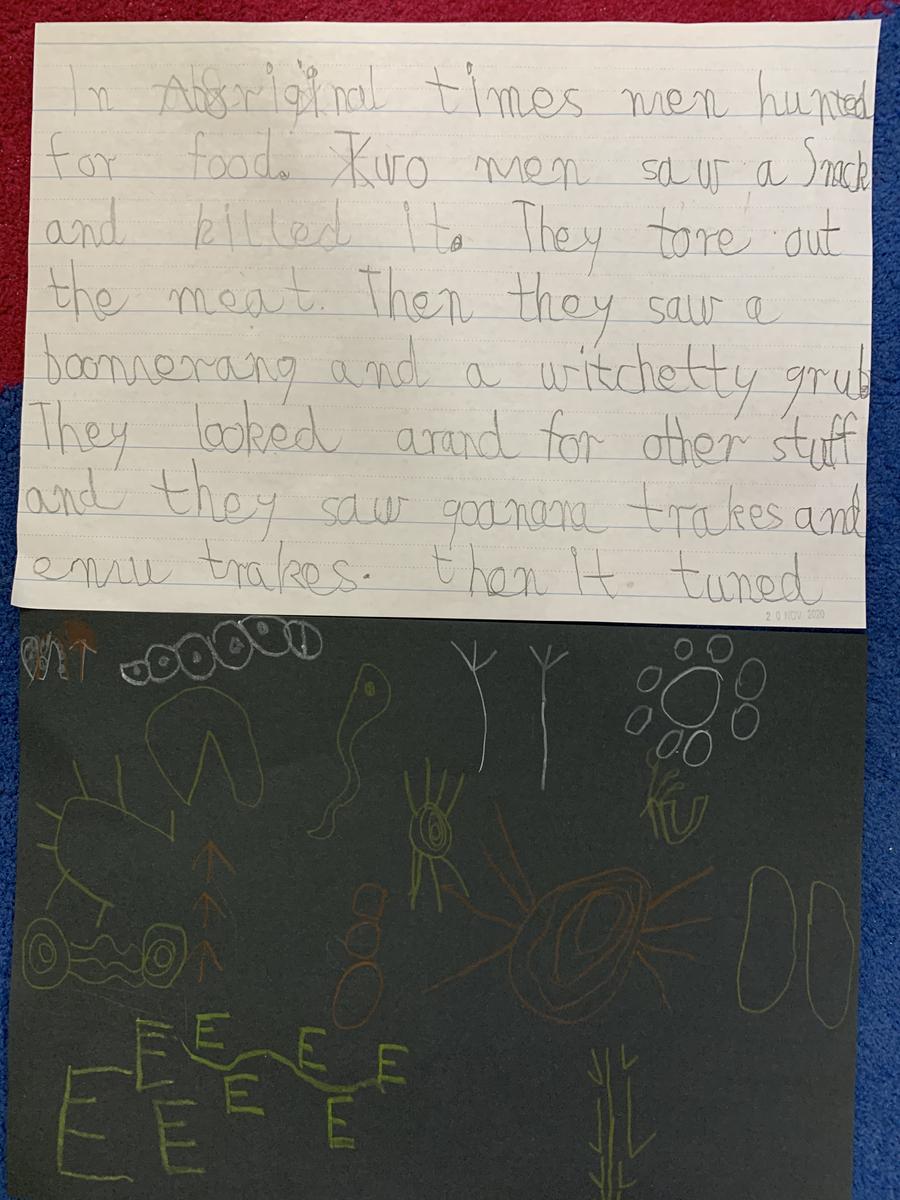 In Aboriginal times men hunted
for food. Two men saw a Snack
and killed it. They tore out
the meat. Then they saw a
boomerang and a witchetty grub
They looked arand for other stuff
and they saw goanana trakes and
emu trakes. then it tuned
20 NOV 2020
E E E E E E E E